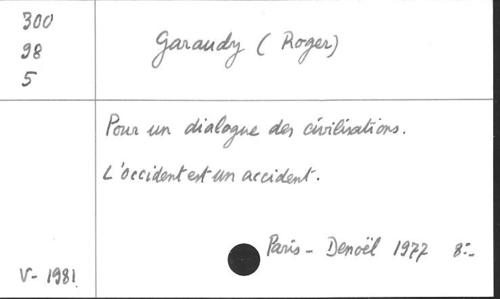 300
98
5
Garaudy ( Roger)
Pour un dialogue des civilisations.
L'occident est un accident.
Paris - Denoël 1977 8:-
V- 1981